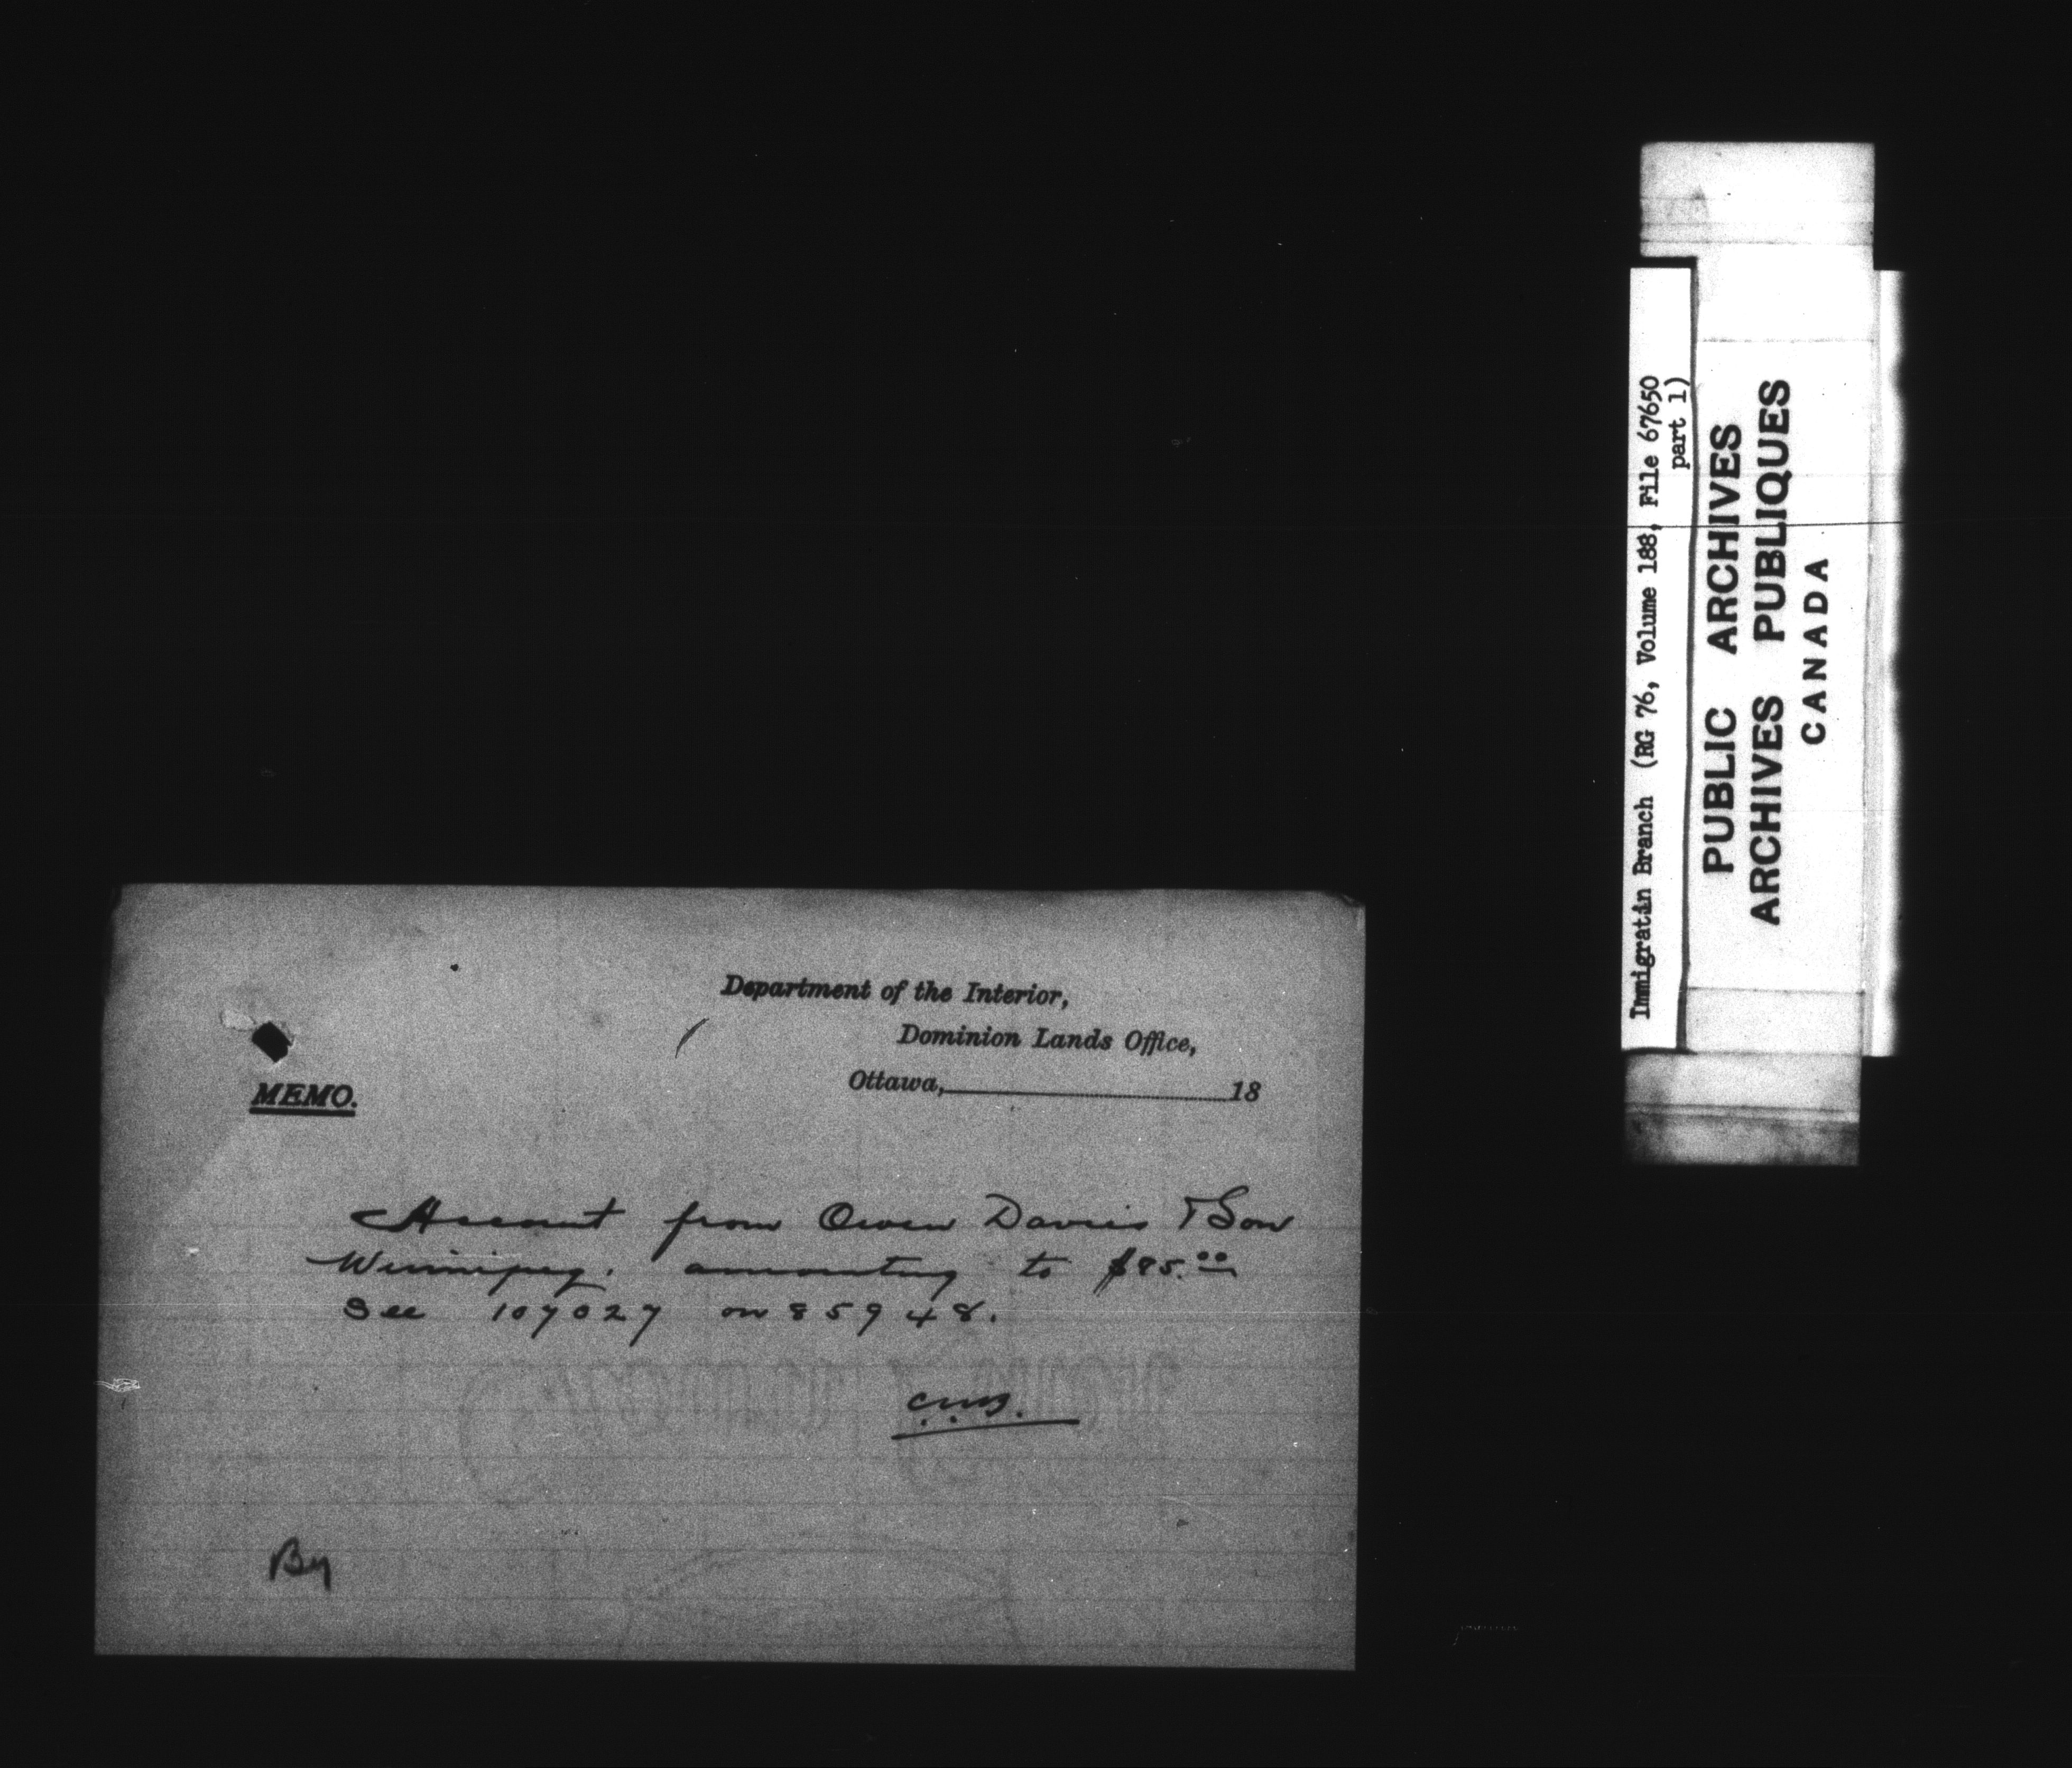 Department of the Interior,
Dominion Lands Office,
Ottawa, 18
MEMO.
Account from Owen Davies & Son
Winnipeg. amounting to $85.00
See 107027 on 85948.
By
Immigratin Branch (RG 76, Volume 188, File 67650
part 1)
PUBLIC ARCHIVES
ARCHIVES PUBLIQUES
CANADA